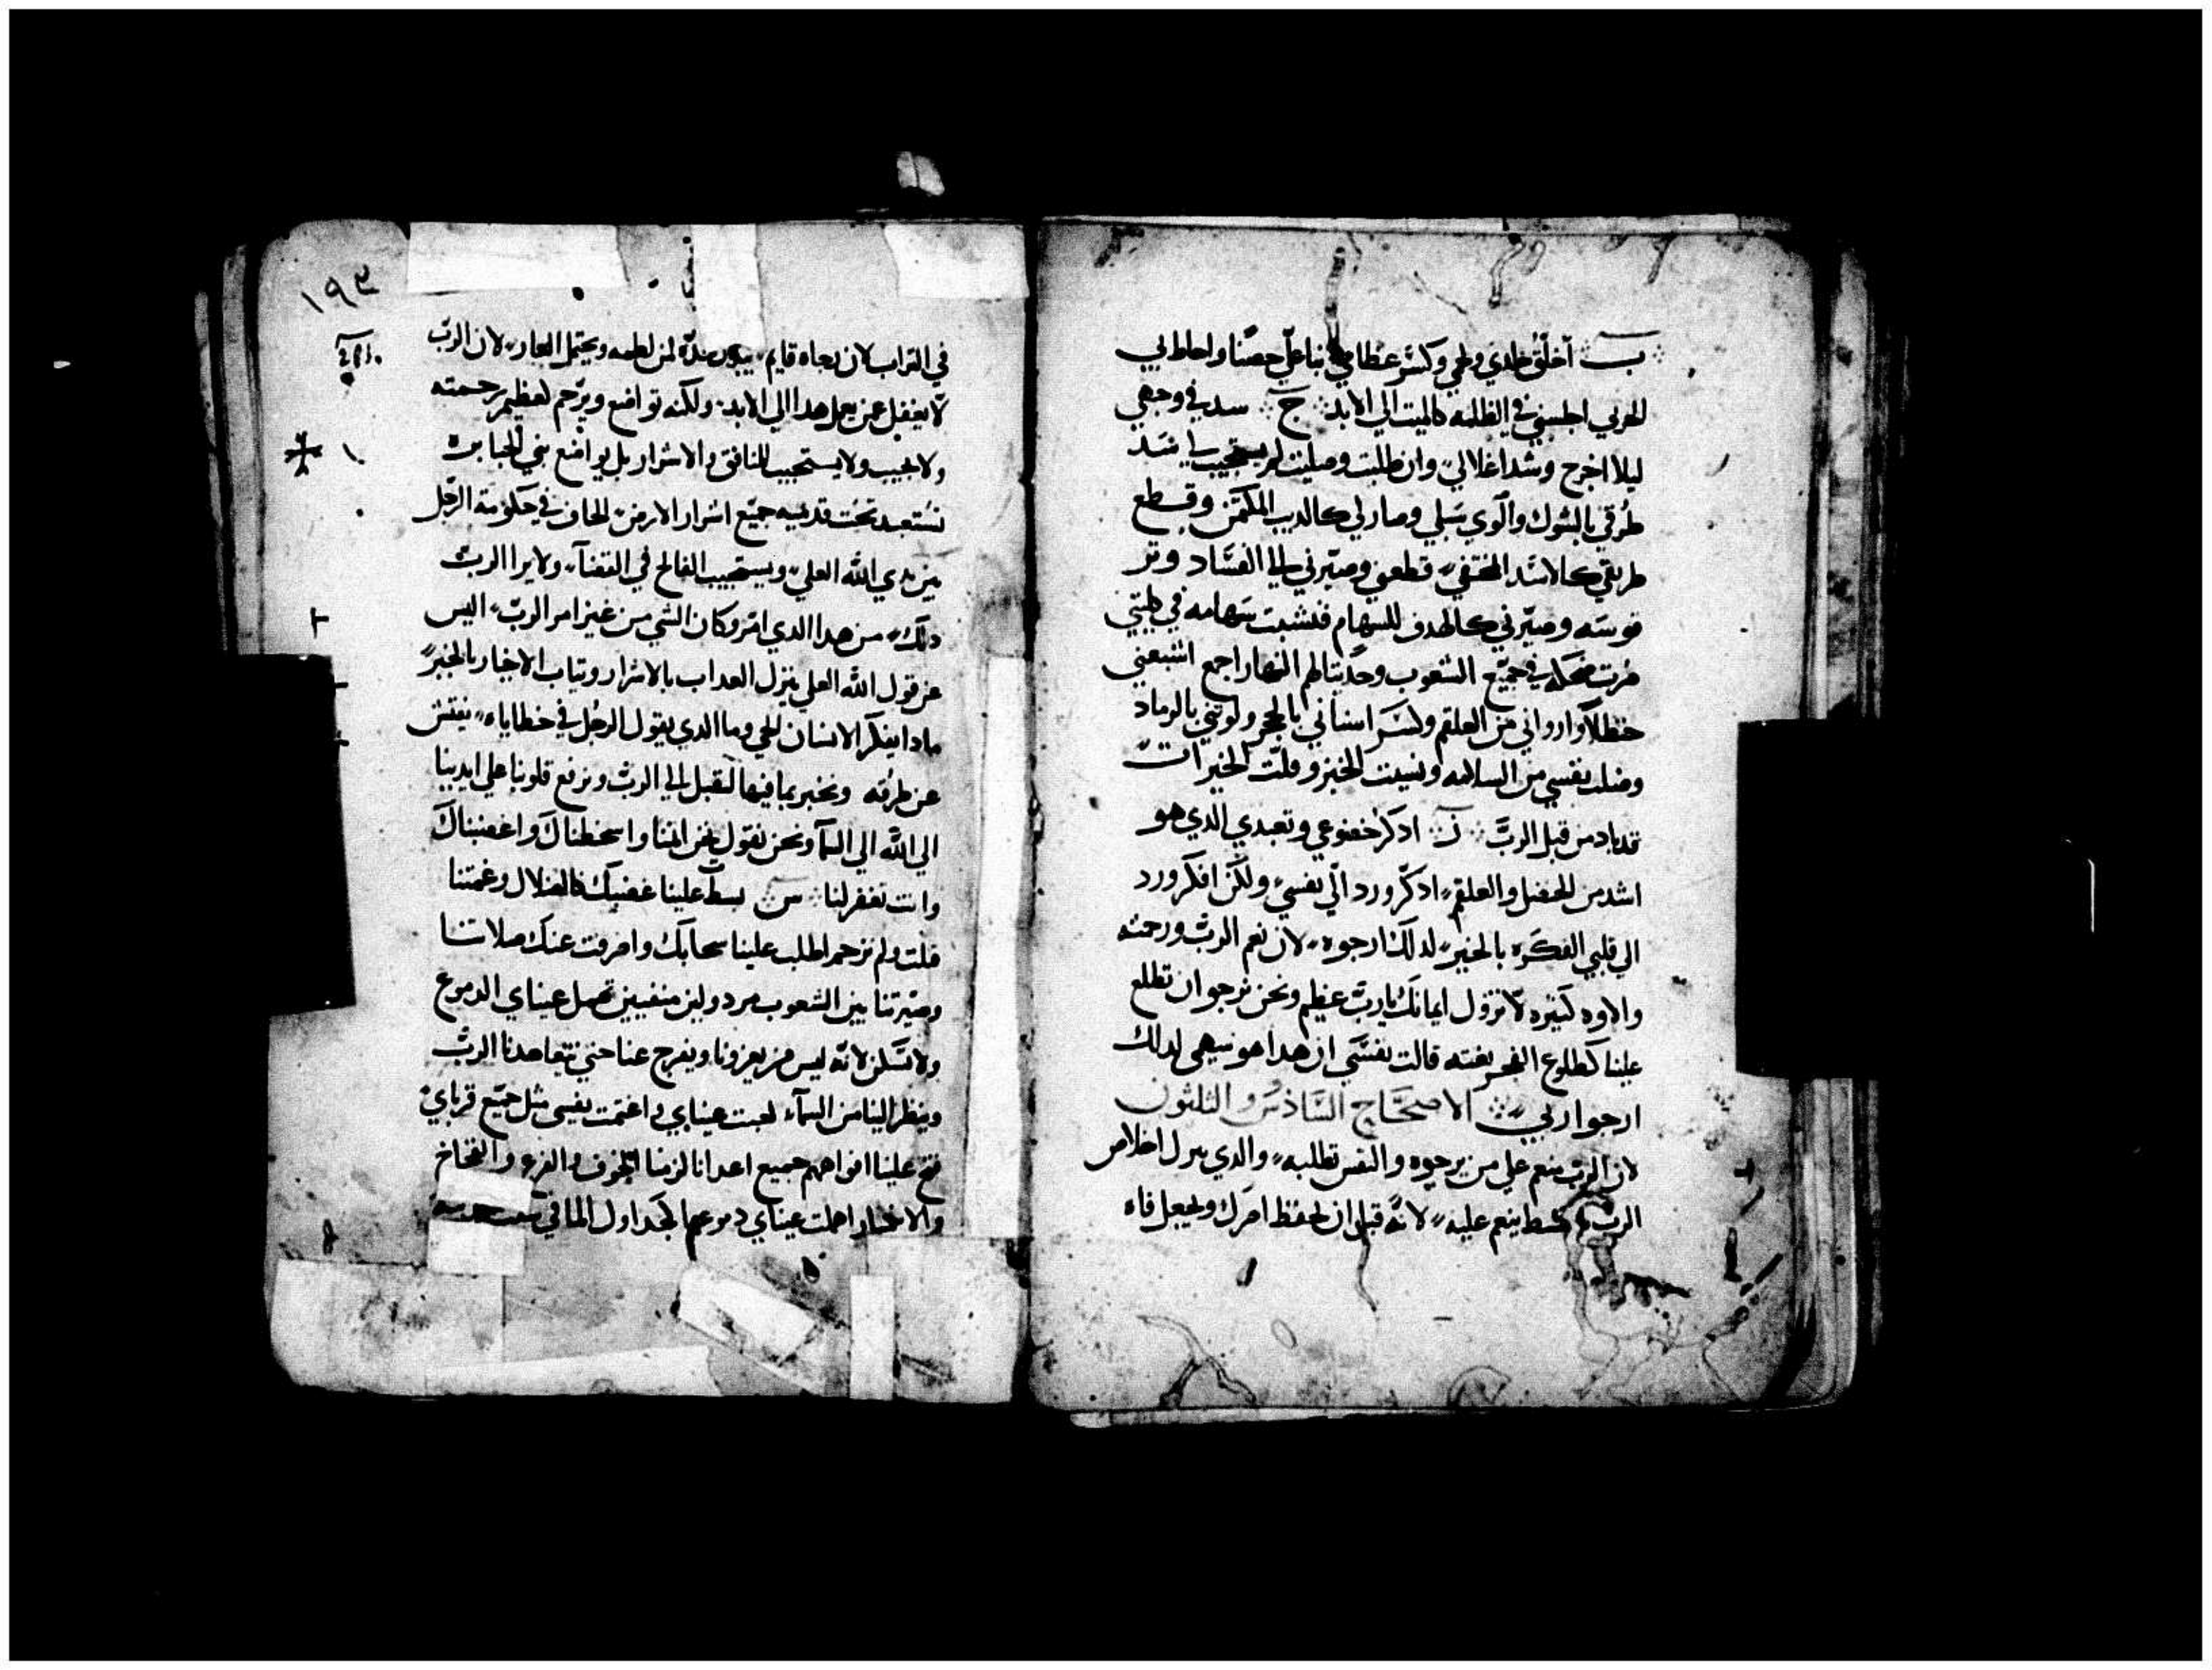 ب اخلق جلدي ولحمي وكسر عظامي بنا علي حصنا واحاط بي
الحربي اجلسني في الظلمه كالميت الي الابد ج سد في وجهي
ليلا اخرج وشد اغلالي وان طلبت وصليت لم يستجيب لي سد
طرقي بالشوك والوي سبلي وصار لي كالديب المكمن وقطع
طريقي كالاسد المختفي قطعني وصيرني الي الفساد وتر
قوسه وصيرني كالهدف للسهام فنشبت سهامه في كليتي
صرت ضحكه في جميع الشعوب وحديثا لهم النهار اجمع اشبعني
حنظلا وارواني من العلقم وكسر اسناني بالحجر ولوثني بالرماد
وضلت نفسي من السلامه ونسيت الخبز وقلت الخيرات
قد باد من قبل الرب ز ادكر خضوعي وتعبدي الدي هو
اشد من الحضل والعلقم ادكر ورد الي نفسي ولكن افكر ورد
الي قلبي الفكره بالخير لدلك ارجوه لان نعم الرب ورحمته
والاوه كثيره لا تزول ايمانك يا رب عظيم ونحن نرجوا ان تطلع
علينا كطلوع الفجر بغته قالت نفسي ان هدا هو سهمي لدلك
ارجوا ربي الاصحاح السادس والثلثون
لان الرب ينعم علي من يرجوه والنفس تطلبه والدي يترك اخلاص
الرب ينعم عليه لانه قبل ان يحفظ امرك ويجعل فاه
١٩٣
في التراب لان رجاه قايم يبدل خده لمن لطمه ويحتمل العار لان الرب
لا يغفل عن يعمل هدا الي الابد ولكنه تواضع ويرحم لعظيم رحمته
ولا يجيب ولا يستجيب للمنافق والاشرار بل يواضع بني الجبابره
نستعبد تحت قدميه جميع اشرار الارض الحاف في حكومة الرجل
بين يدي الله العلي ويستجيب الفالح في القضآ ولا يرا الرب
دلك من هدا الدي امر وكان الشي من غير امر الرب اليس
عن قول الله العلي ينزل العداب بالاشرار ويتاب الاخيار بالخير
مادا يفكر الانسان الحي وما الدي يقول الرجل في خطاياه نفتش
عن طرقه ونخبر بما فيها لنقبل الي الرب ونرفع قلوبنا علي ايدينا
الي الله الي السمآ ونحن نقول نحن اثمنا واسخطناك واغضبناك
وانت تغفر لنا س بسط علينا غضبك كالضلال وغمتنا
قلت ولم ترحم اطلب علينا سحابك واصرفت عنك صلاتنا
وصيرتنا بين الشعوب مردولين منفيين تهمل عيناي الدموع
ولا تسكن لانه ليس من يعزونا ويفرج عنا حتي يتعاهدنا الرب
وينظر الينا من السمآ تعبت عيناي واغتمت نفسي مثل جميع قرباي
فتح علينا افواههم جميع اعدانا لزمنا الخوف والفزع والفخاخ
والانكسار اهملت عيناي دموعهم كجداول الما في